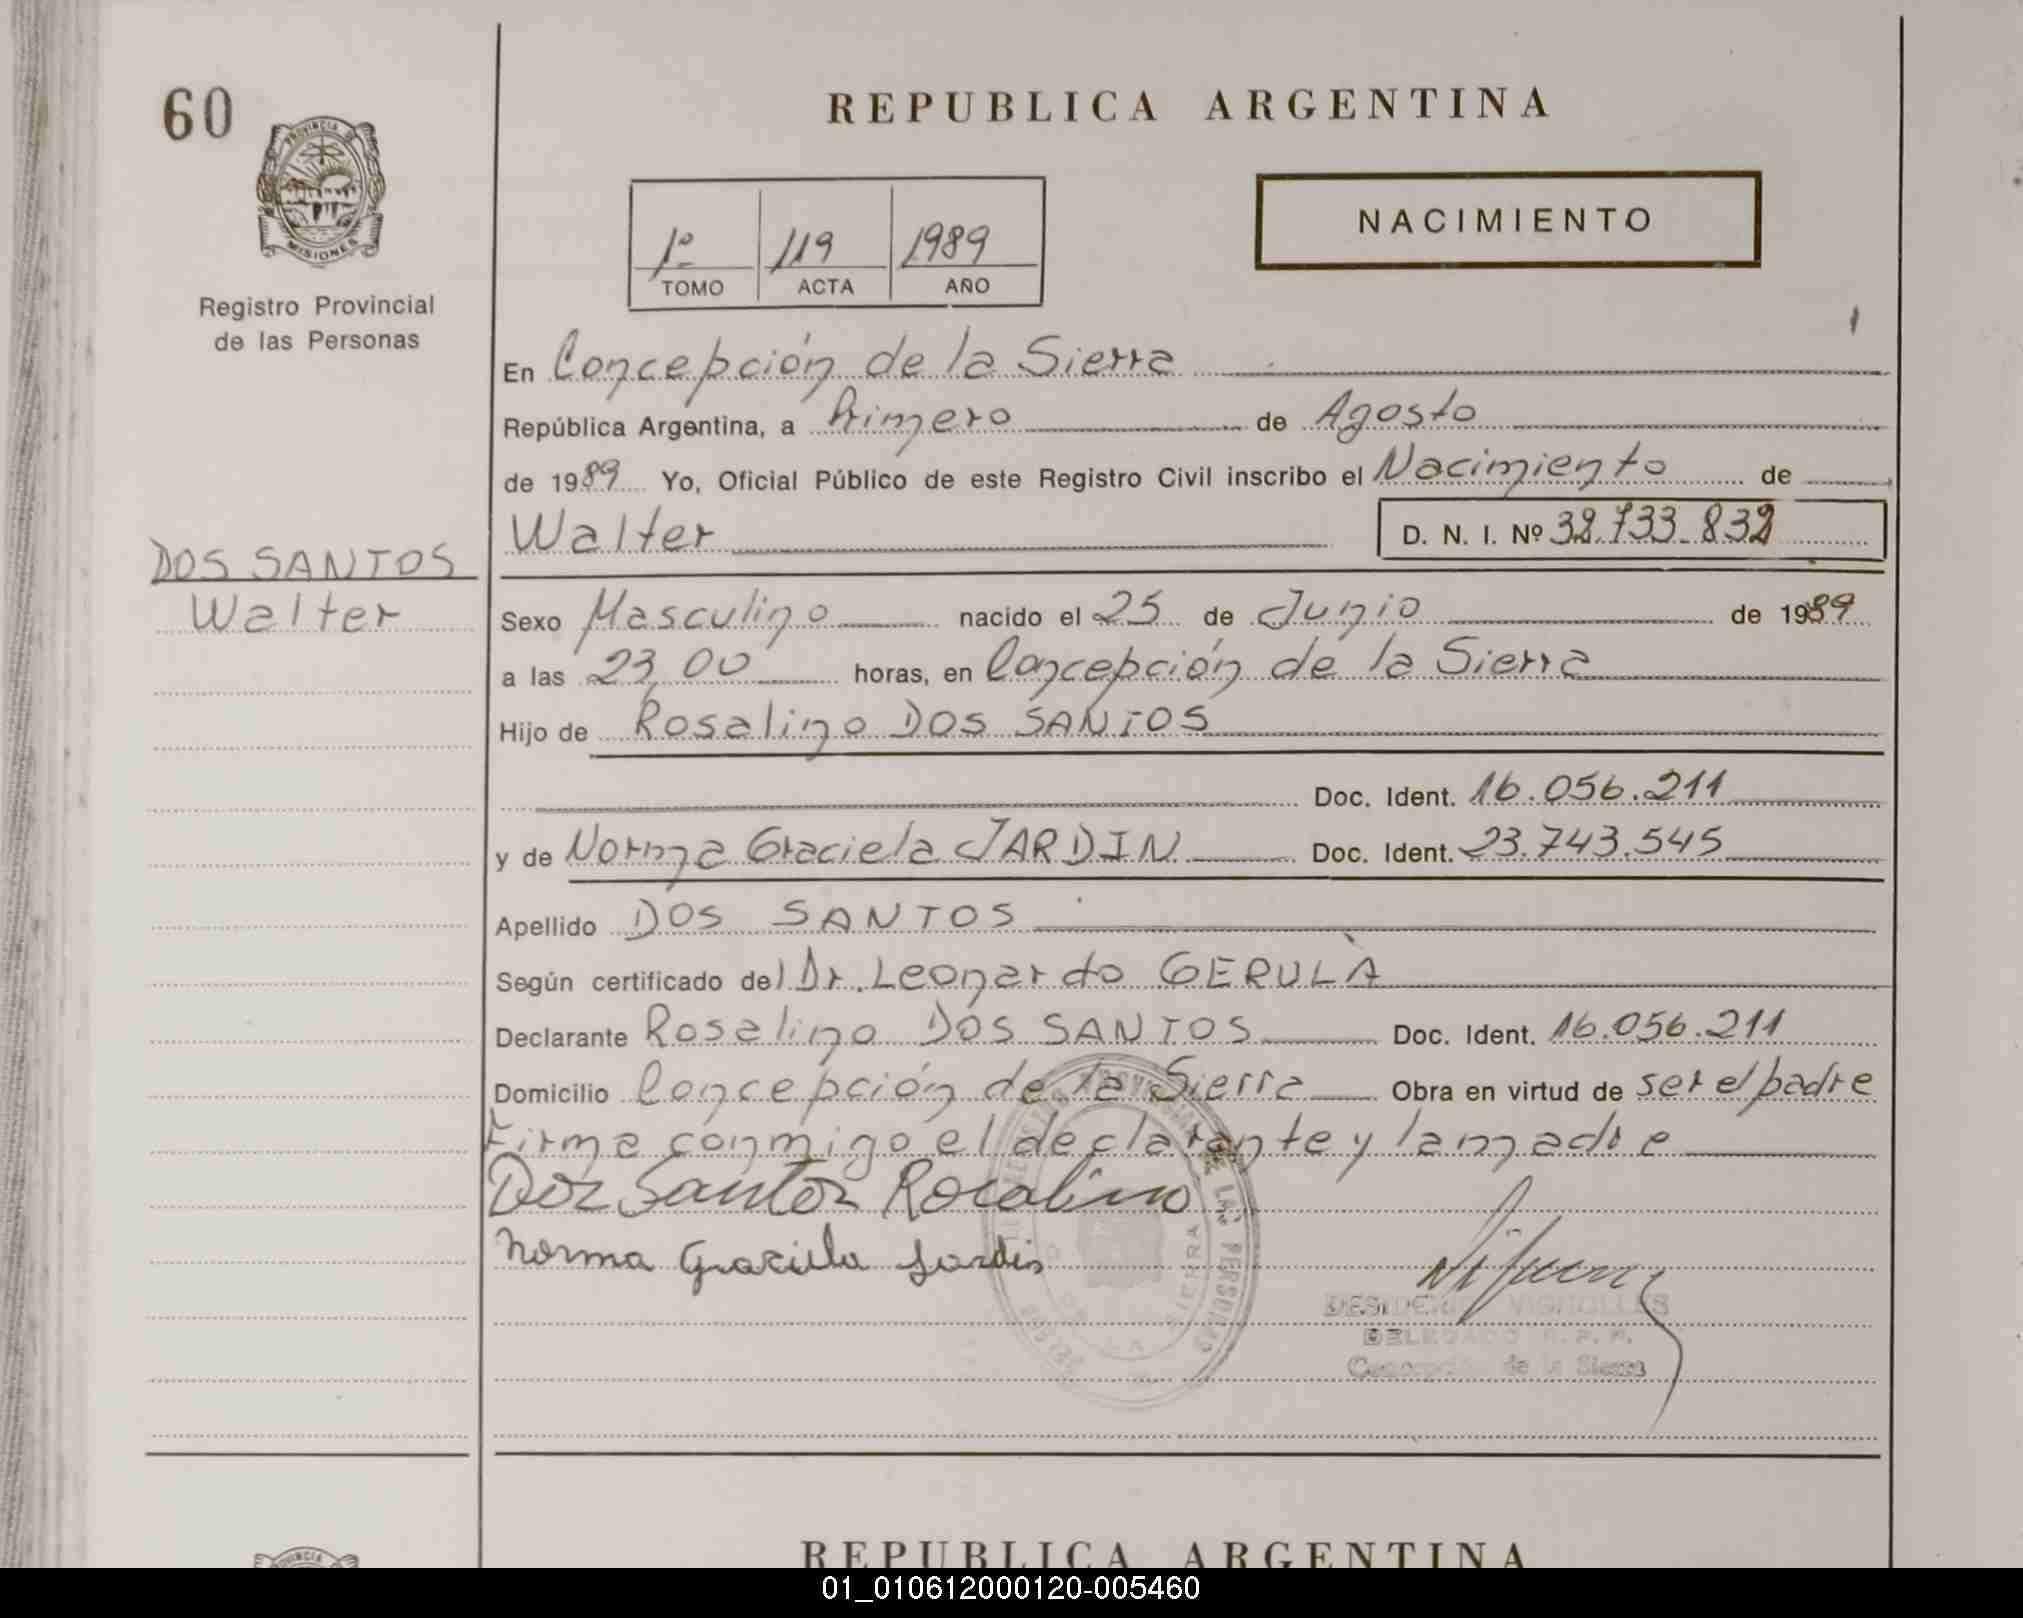 60
REPUBLICA ARGENTINA
PROVINCIA DE
MISIONES
Registro Provincial
de las Personas
1º 119 1989
TOMO ACTA AÑO
NACIMIENTO
En Concepción de la Sierra
República Argentina, a Primero de Agosto
de 1989 Yo, Oficial Público de este Registro Civil inscribo el Nacimiento de
Walter D. N. I. Nº
DOS SANTOS
Walter
Sexo Masculino nacido el 25 de Junio de 1989
a las 23,00 horas, en Concepción de la Sierra
Hijo de Rosalino DOS SANTOS
Doc. Ident. 16.056.211
y de Norma Graciela JARDIN Doc. Ident. 23.743.545
Apellido DOS SANTOS
Según certificado del Dr. Leonardo GERULÀ
Declarante Rosalino DOS SANTOS Doc. Ident. 16.056.211
Domicilio Concepción de la Sierra Obra en virtud de ser el padre
Firma conmigo el declarante y la madre
Dos Santos Rosalino
Norma Graciela Jardin
DELEGADO R. P. P.
Concepción de la Sierra
REPUBLICA ARGENTINA
01_010612000120-005460